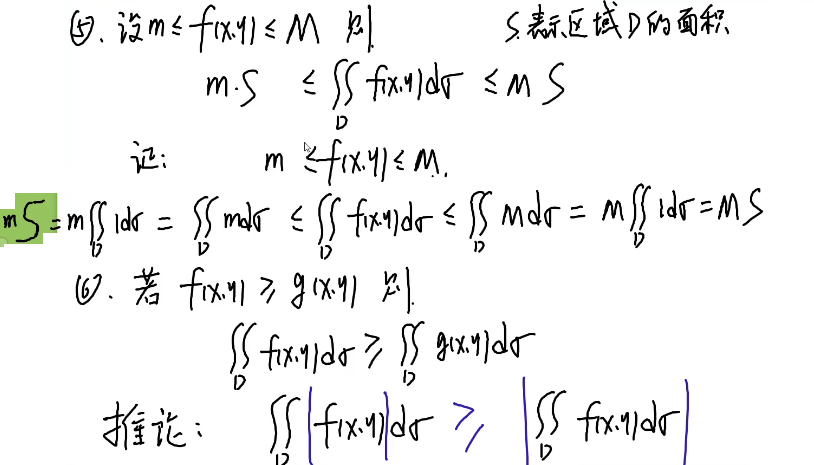 ⑤. 设 m ≤ f(x,y) ≤ M 则 S表示区域D的面积
m·S ≤ ∬_D f(x,y)dσ ≤ M S
证: m ≤ f(x,y) ≤ M.
mS = m∬_D 1dσ = ∬_D mdσ ≤ ∬_D f(x,y)dσ ≤ ∬_D Mdσ = M∬_D 1dσ = MS
⑥. 若 f(x,y) ≥ g(x,y) 则
∬_D f(x,y)dσ ≥ ∬_D g(x,y)dσ
推论: ∬_D |f(x,y)|dσ ≥ |∬_D f(x,y)dσ|